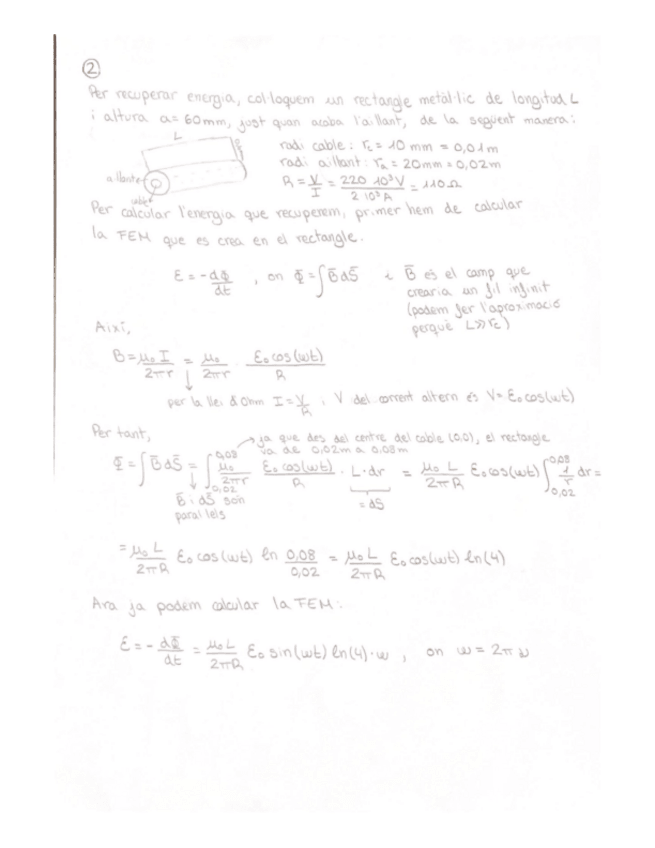 2
Per recuperar energia, col·loquem un rectangle metàl·lic de longitud L
i altura a = 60mm, just quan acaba l'aïllant, de la següent manera:
L
radi cable: rc = 10 mm = 0,01m
radi aïllant: ra = 20mm = 0,02m
aïllante
cable
R = V/I = 220 10³V / 2 10³A = 110Ω
Per calcular l'energia que recuperem, primer hem de calcular
la FEM que es crea en el rectangle.
ε = -dΦ/dt , on Φ = ∫B̄dS̄ i B̄ és el camp que
crearia un fil infinit
(podem fer l'aproximació
perquè L>>rc)
Així,
B = μ₀I/2πr = μ₀/2πr · ε₀cos(ωt)/R
per la llei d'Ohm I = V/R i V del corrent altern és V = ε₀cos(ωt)
Per tant,
ja que des del centre del cable (0,0), el rectangle
va de 0,02m a 0,08m
Φ = ∫B̄dS̄ = ∫_{0,02}^{0,08} μ₀/2πr ε₀cos(ωt)/R · L·dr = μ₀L/2πR ε₀cos(ωt) ∫_{0,02}^{0,08} 1/r dr =
= dS
B̄ i dS̄ són
paral·lels
= μ₀L/2πR ε₀cos(ωt) ln 0,08/0,02 = μ₀L/2πR ε₀cos(ωt) ln(4)
Ara ja podem calcular la FEM:
ε = -dΦ/dt = μ₀L/2πR ε₀ sin(ωt) ln(4)·ω , on ω = 2πν